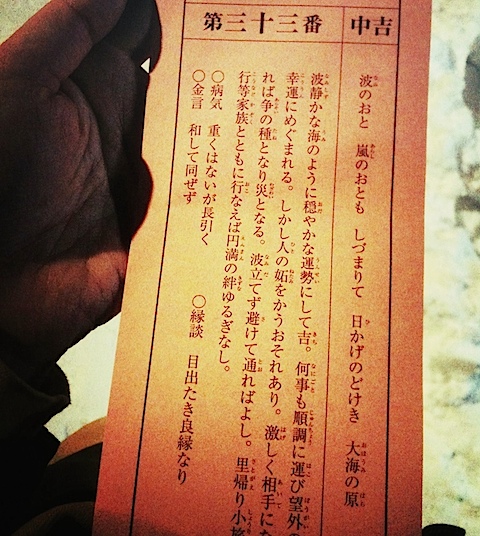 第三十三番 中吉
波のおと 嵐のおとも しづまりて 日かげのどけき 大海の原
波静かな海のように穏やかな運勢にして吉。何事も順調に運び望外の
幸運にめぐまれる。しかし人の妬をかうおそれあり。激しく相手にな
れば争の種となり災となる。波立てず避けて通ればよし。里帰り小旅
行等家族とともに行なえば円満の絆ゆるぎなし。
○病気 重くはないが長引く
○金言 和して同ぜず ○縁談 目出たき良縁なり